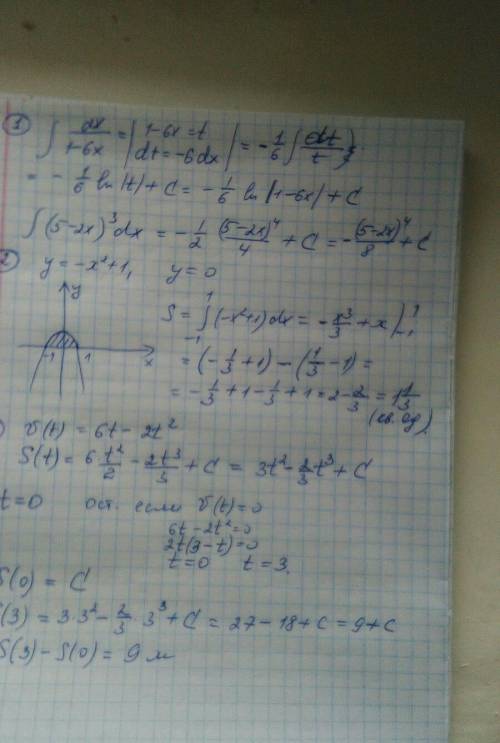 ① ∫ dx/(1-6x) = | 1-6x = t, dt = -6dx | = -1/6 ∫ dt/t =
= -1/6 ln|t| + C = -1/6 ln|1-6x| + C
∫(5-2x)³dx = -1/2 (5-2x)⁴/4 + C = -(5-2x)⁴/8 + C
2 y = -x²+1, y = 0
y
-1 1 x
S = ∫₋₁¹ (-x²+1)dx = -x³/3 + x |₋₁¹
= (-1/3 + 1) - (1/3 - 1) =
= -1/3 + 1 - 1/3 + 1 = 2 - 2/3 = 1 1/3
(кв. ед.)
) v(t) = 6t - 2t²
S(t) = 6 t²/2 - 2t³/3 + C = 3t² - 2/3 t³ + C
t = 0 ост. если v(t) = 0
6t - 2t² = 0
2t(3-t) = 0
t = 0 t = 3.
S(0) = C
S(3) = 3·3² - 2/3 · 3³ + C = 27 - 18 + C = 9 + C
S(3) - S(0) = 9 м